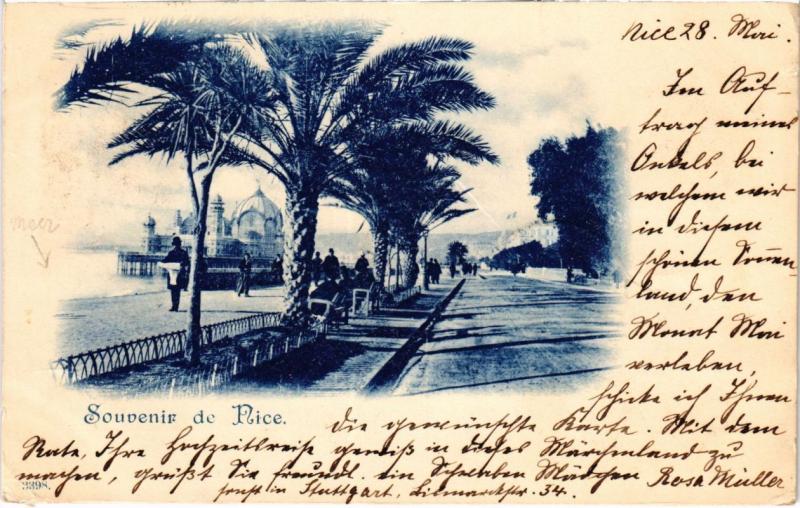 Nice 28. Mai.
Im Auf-
trag meines
Onkels, bei
welchem wir
in diesem
schönen Sonnen-
land, den
Monat Mai
verleben,
schicke ich Ihnen
die gewünschte Karte. Mit dem
Rate, Ihre Hochzeitsreise gewiß in dieses Märchenland zu
machen, grüßt Sie freundl. ein Schwaben Mädchen Rosa Müller
sonst in Stuttgart, Bismarckstr. 34.
meer
Souvenir de Nice.
3398.